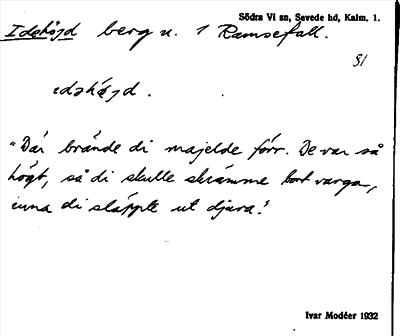 Södra Vi sn, Sevede hd, Kalm. l.
Idehöjd berg u. 1 Ramsefall.
51
ɩdəhǿjd.
"Där brände di majelde förr. De var så
högt, så di skulle skrämme bort varga,
inna di släppte ut djura."
Ivar Modéer 1932